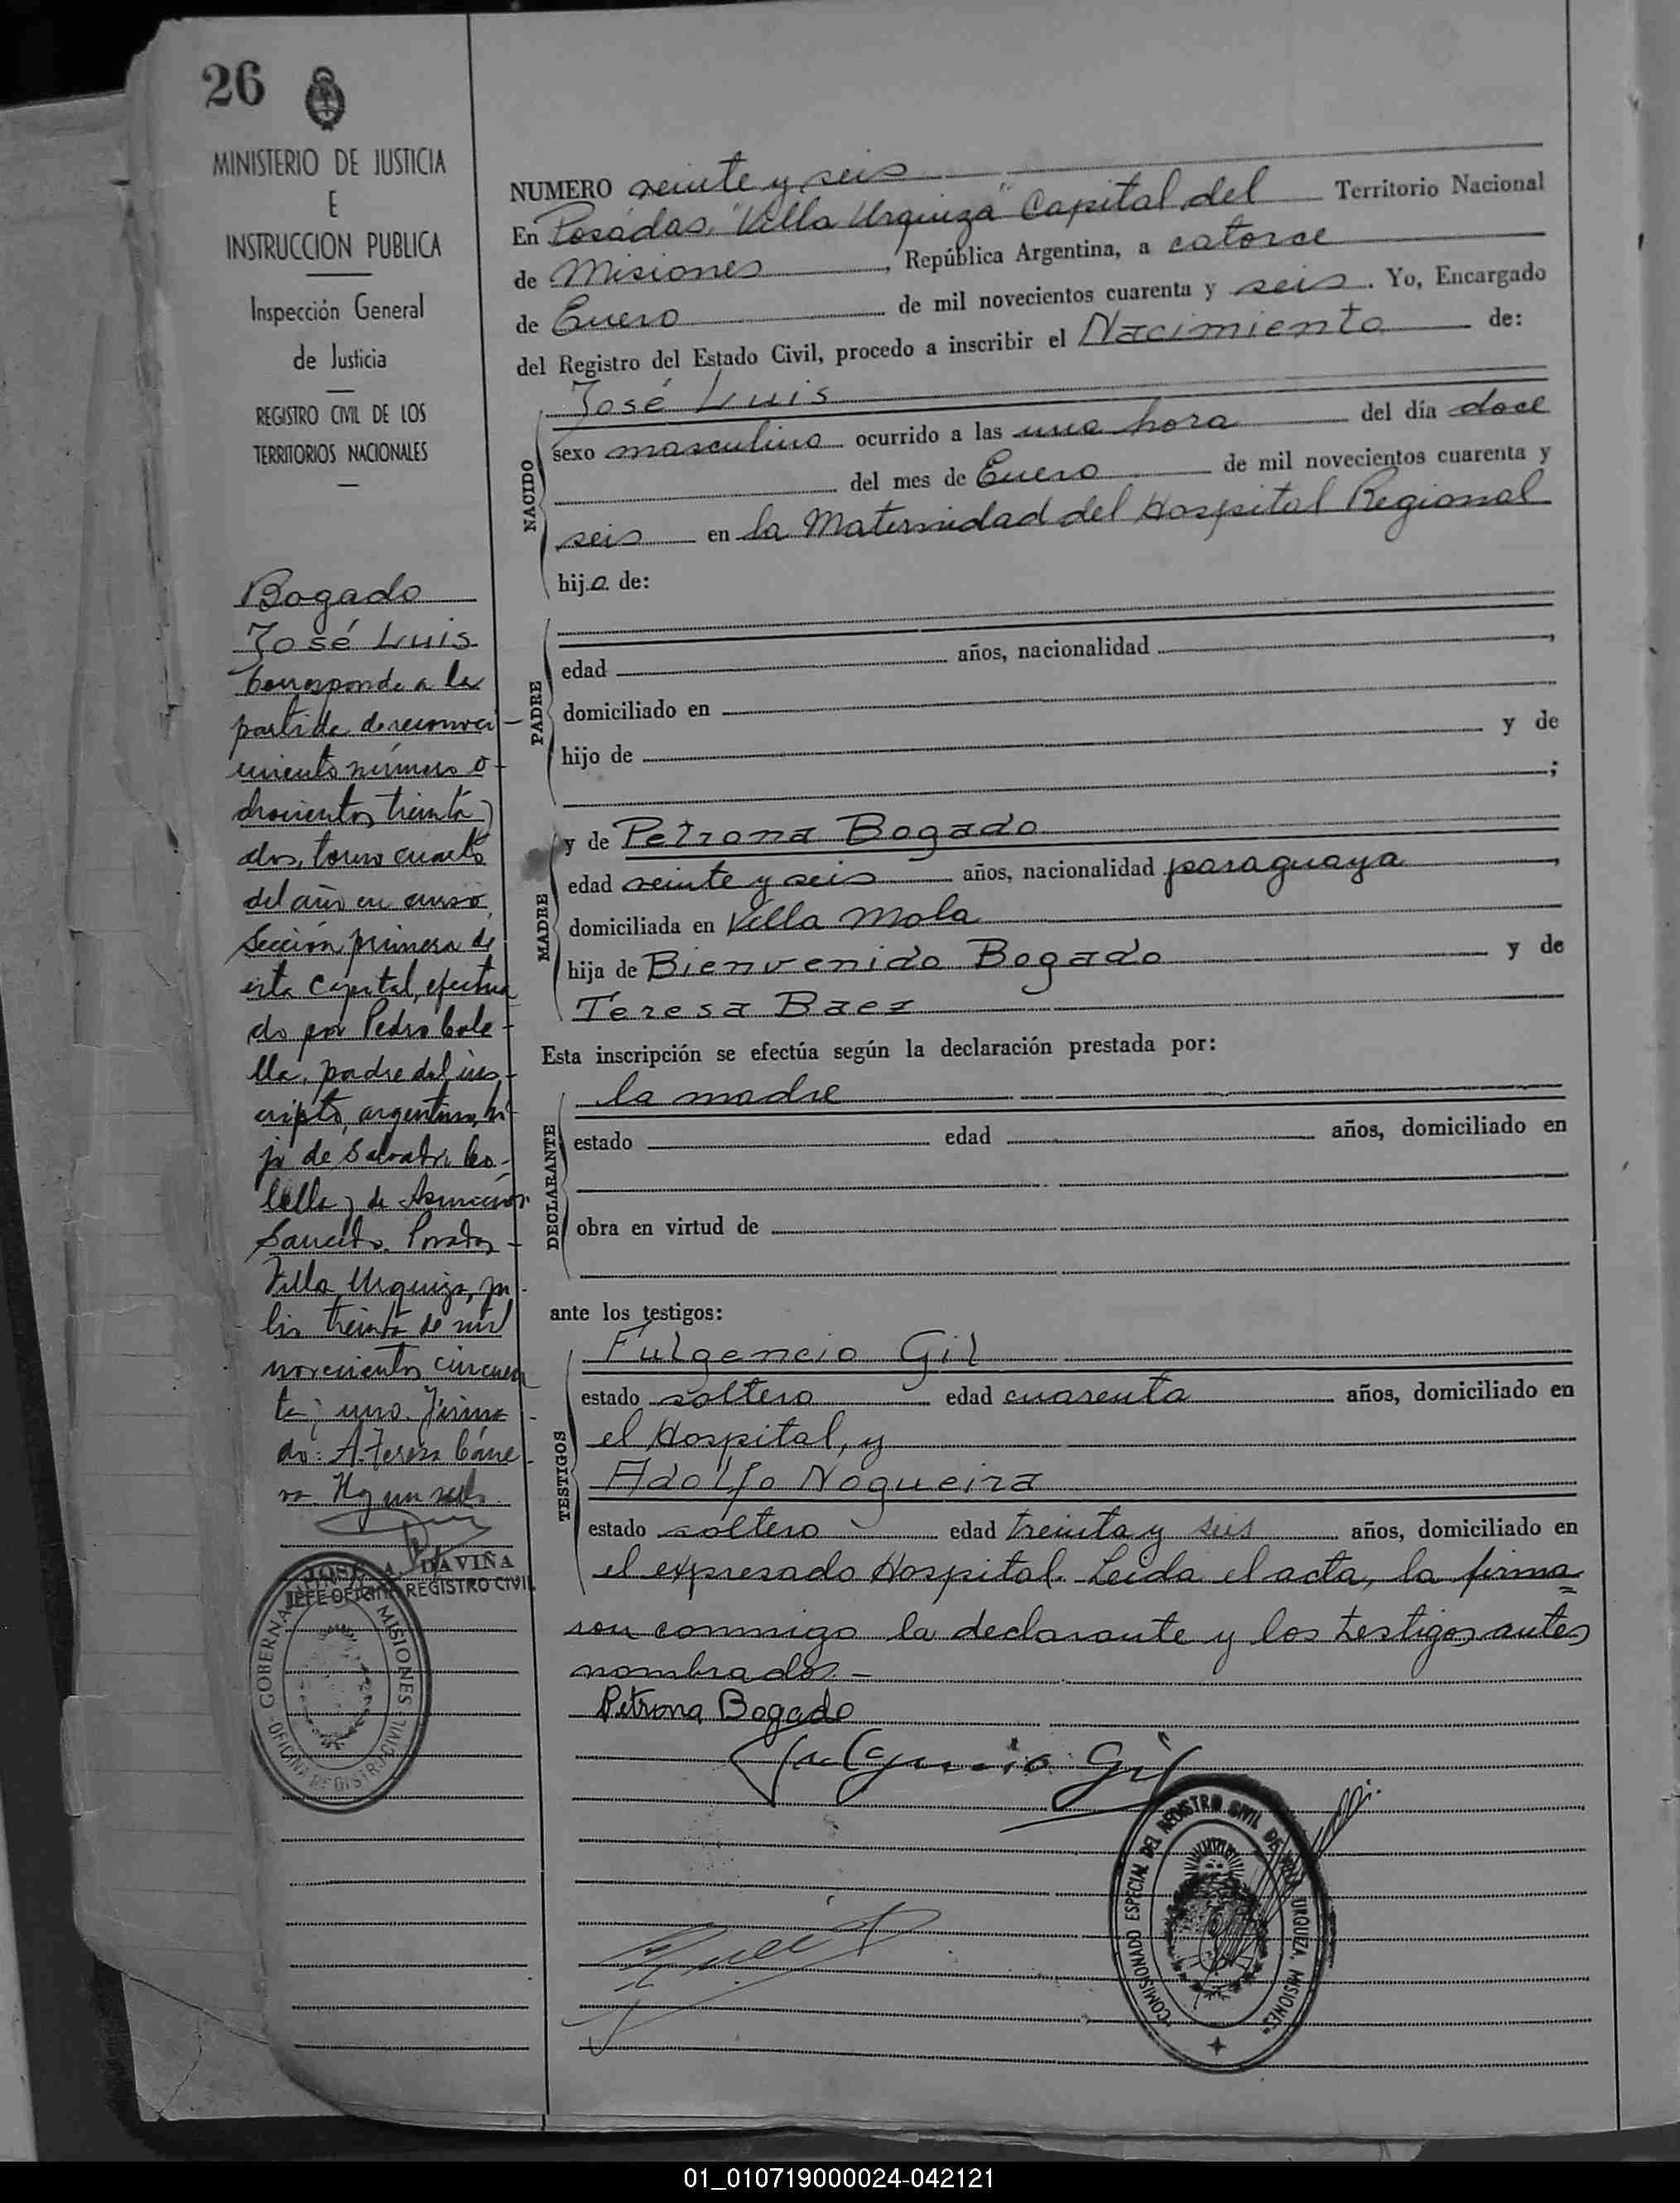 26
MINISTERIO DE JUSTICIA
E
INSTRUCCION PUBLICA
Inspección General
de Justicia
REGISTRO CIVIL DE LOS
TERRITORIOS NACIONALES
Bogado
José Luis
Corresponde a la
partida de reconoci-
miento número o-
chocientos treinta y
dos, tomo cuarto
del año en curso,
Sección primera de
esta Capital, efectua
do por Pedro Cole-
lla, padre del ins-
cripto, argentino, hi-
jo de Salvador Co-
lella y de Asunción
Saucedo. Posadas-
Villa Urquiza, ju-
lio treinta de mil
novecientos cincuen
ta y uno. Firma-
do: A. Teresa
Hay un sello.
JOSE A. DAVIÑA
JEFE OFICINA REGISTRO CIVIL
GOBERNA MISIONES
OFICINA REGISTRO CIVIL
NUMERO veinte y seis
En Posadas, "Villa Urquiza" Capital del Territorio Nacional
de Misiones, República Argentina, a catorce
de Enero de mil novecientos cuarenta y seis. Yo, Encargado
del Registro del Estado Civil, procedo a inscribir el Nacimiento de:
NACIDO
José Luis
sexo masculino ocurrido a las una hora del día doce
del mes de Enero de mil novecientos cuarenta y
seis en la Maternidad del Hospital Regional
hijo de:
PADRE
edad años, nacionalidad ,
domiciliado en
hijo de y de
;
MADRE
y de Petrona Bogado
edad veinte y seis años, nacionalidad paraguaya,
domiciliada en Villa Mola
hija de Bienvenido Bogado y de
Teresa Baez
Esta inscripción se efectúa según la declaración prestada por:
DECLARANTE
la madre
estado edad años, domiciliado en
obra en virtud de
ante los testigos:
TESTIGOS
Fulgencio Gil
estado soltero edad cuarenta años, domiciliado en
el Hospital, y
Adolfo Nogueira
estado soltero edad treinta y seis años, domiciliado en
el expresado Hospital. Leída el acta, la firma=
ron conmigo la declarante y los testigos antes
nombrados.-
Petrona Bogado
Fulgencio Gil
COMISIONADO ESPECIAL DEL REGISTRO CIVIL DE VILLA URQUIZA, MISIONES
01_010719000024-042121